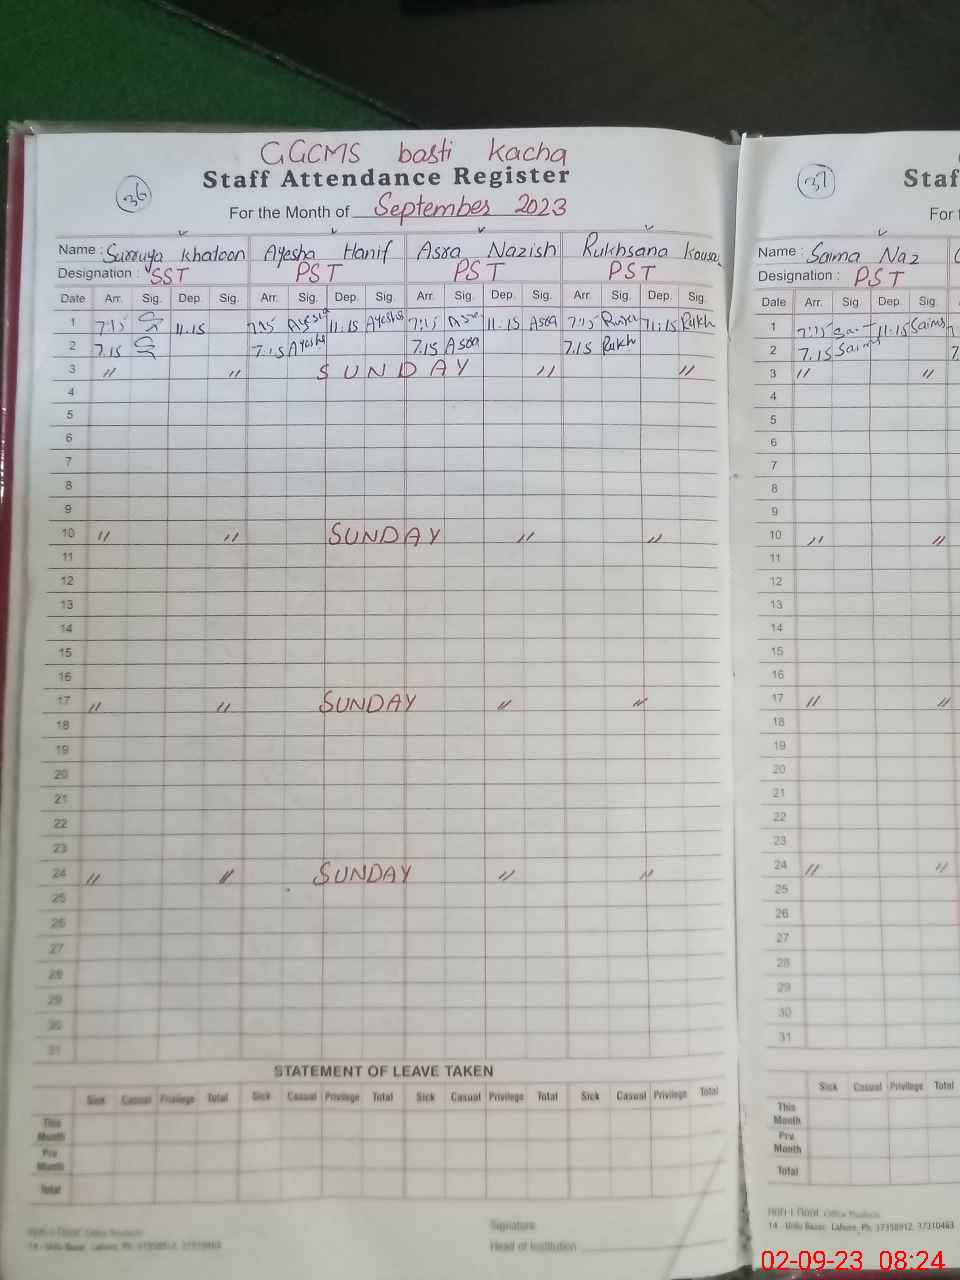 GGCMS basti kacha
36
Staff Attendance Register
For the Month of September 2023
Name : Surruya Khatoon Ayesha Hanif Asra Nazish Rukhsana Kousar
Designation : SST PST PST PST
Date Arr. Sig. Dep. Sig. Arr. Sig. Dep. Sig. Arr. Sig. Dep. Sig. Arr. Sig. Dep. Sig.
1 7:15 11.15 7:15 Ayesha 11.15 Ayesha 7:15 Asra 11.15 Asra 7:15 Rukh 11:15 Rukh
2 7.15 7.15 Ayesha 7.15 Asra 7.15 Rukh
3 〃 〃 SUNDAY 〃 〃
4
5
6
7
8
9
10 〃 〃 SUNDAY 〃 〃
11
12
13
14
15
16
17 〃 〃 SUNDAY 〃 〃
18
19
20
21
22
23
24 〃 〃 SUNDAY 〃 〃
25
26
27
28
29
30
31
STATEMENT OF LEAVE TAKEN
Sick Casual Privilege Total Sick Casual Privilege Total Sick Casual Privilege Total Sick Casual Privilege Total
This Month
Prv. Month
Total
Office Products
14 - Urdu Bazar, Lahore, Ph: 37358912, 37310463
Signature
Head of Institution
37
Staf
For t
Name : Saima Naz
Designation : PST
Date Arr. Sig. Dep. Sig.
1 7:15 11.15 Saima
2 7.15 Saima
3 〃 〃
4
5
6
7
8
9
10 〃 〃
11
12
13
14
15
16
17 〃 〃
18
19
20
21
22
23
24 〃 〃
25
26
27
28
29
30
31
Sick Casual Privilege Total
This Month
Prv. Month
Total
Office Products
14 - Urdu Bazar, Lahore, Ph: 37358912, 37310463
02-09-23 08:24